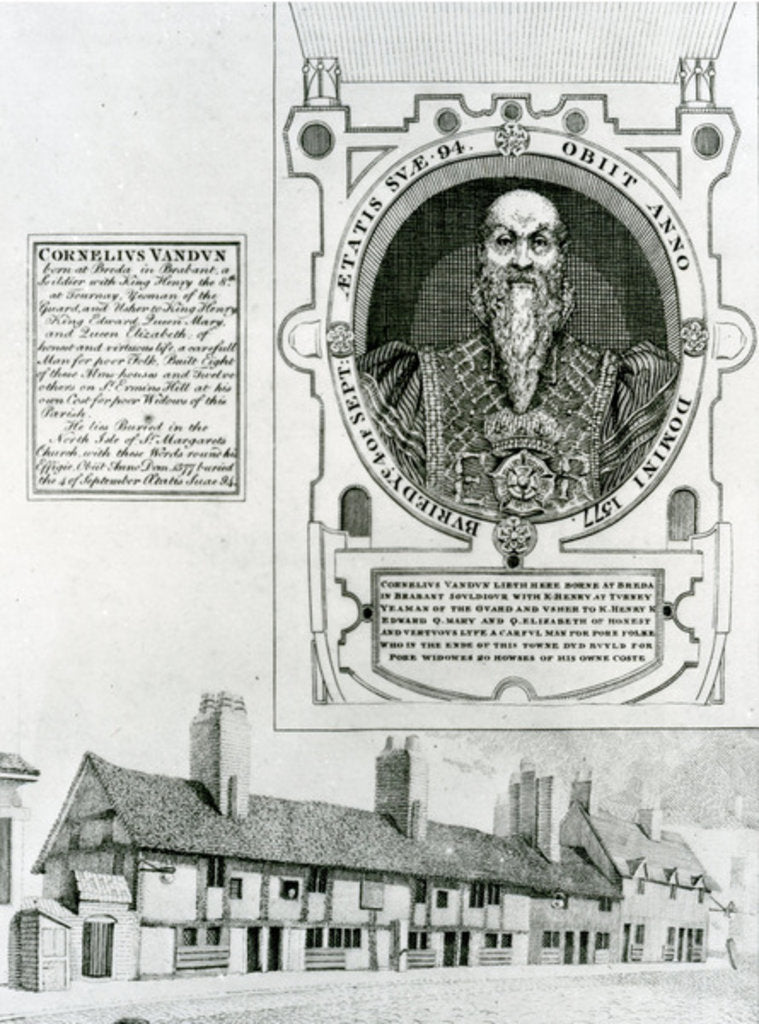 CORNELIVS VANDVN
born at Breda in Brabant, a
Soildier with King Henry the 8th
at Tournay, Yeoman of the
Guard, and Usher to King Henry,
King Edward, Queen Mary,
and Queen Elizabeth; of
honest and virtuous life, a carefull
Man for poor Folk, Built Eight
of these Alms houses and Twelve
others on St. Ermins Hill at his
own Cost for poor Widows of this
Parish.
He lies Buried in the
North Isle of St. Margarets
Church, with these Words round his
Effigie, Obiit Anno Dom. 1577 buried
the 4 of September Ætatis Suae 94.
ÆTATIS SVÆ · 94 .
OBIIT ANNO
DOMINI 1577.
BVRIED Yᵉ 4 OF SEPT:
ER
CORNELIVS VANDVN LIETH HERE BORNE AT BREDA
IN BRABANT SOVLDIOVR WITH K HENRY AT TVRNEY
YEAMAN OF THE GVARD AND VSHER TO K. HENRY K
EDWARD Q. MARY AND Q. ELISABETH OF HONEST
AND VERTVOVS LYFE A CARFVL MAN FOR PORE FOLKE
WHO IN THE ENDE OF THIS TOWNE DYD BVYLD FOR
PORE WIDOWES 20 HOWSES OF HIS OWNE COSTE